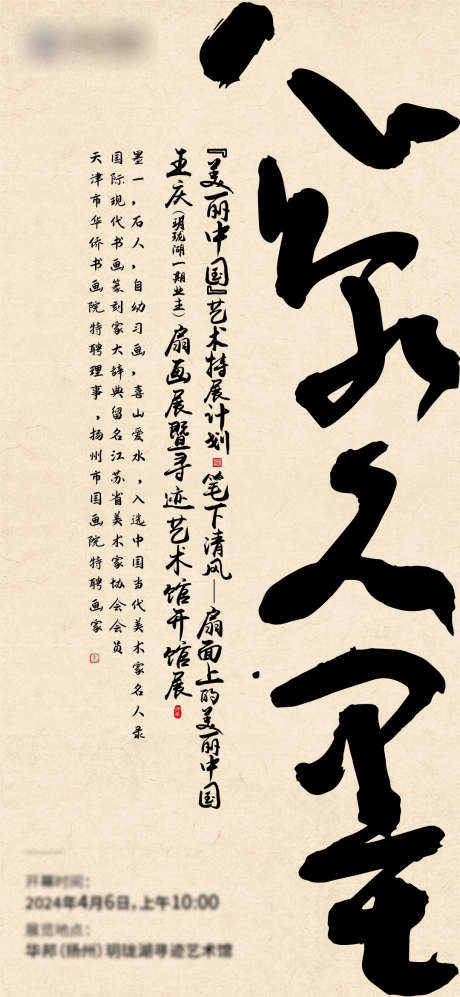 『美丽中国』艺术特展计划 笔下清风—扇面上的美丽中国
王庆(玥珑湖一期业主)扇画展暨寻迹艺术馆开馆展
墨一，石人，自幼习画，喜山爱水，入选中国当代美术家名人录
国际现代书画篆刻家大辞典留名江苏省美术家协会会员
天津市华侨书画院特聘理事，扬州市国画院特聘画家
开幕时间：
2024年4月6日，上午10:00
展览地点：
华邦（扬州）玥珑湖寻迹艺术馆